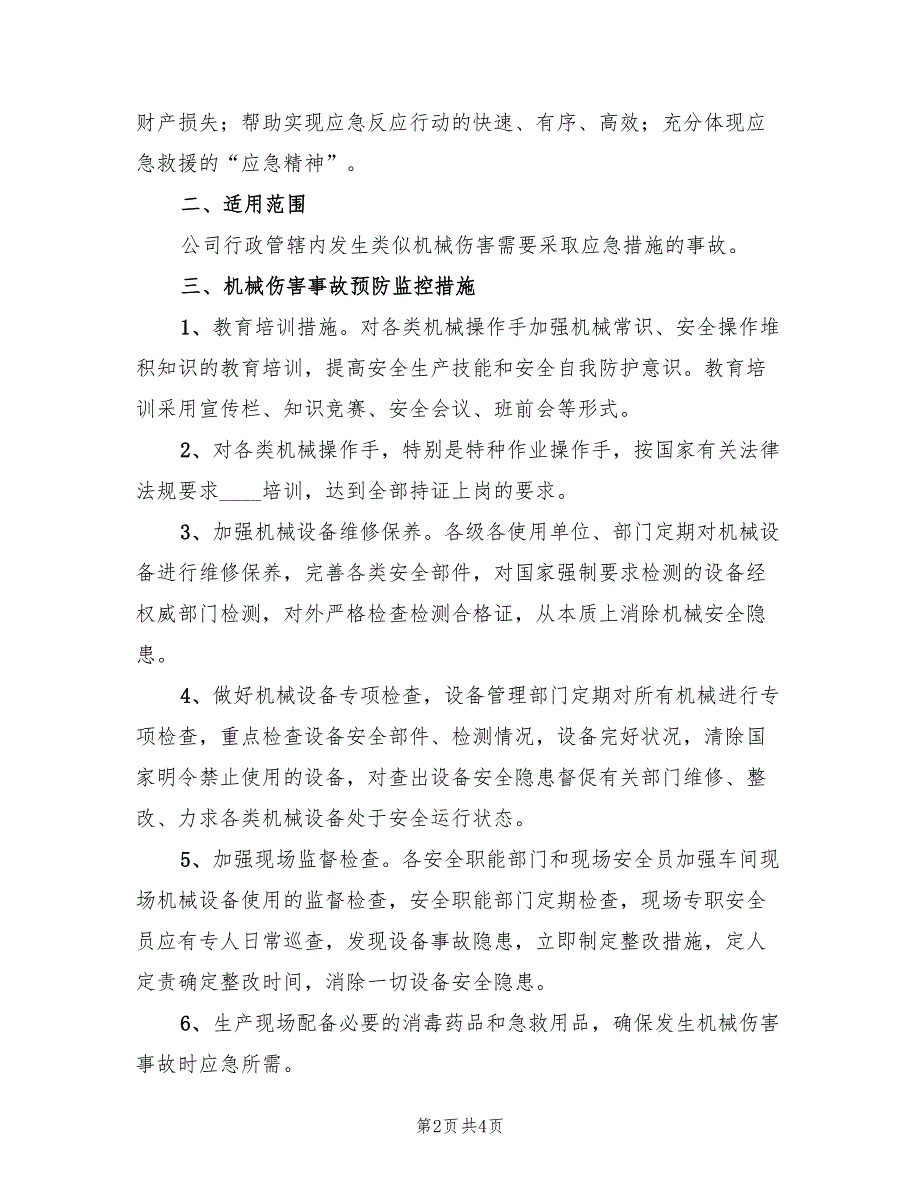 财产损失；帮助实现应急反应行动的快速、有序、高效；充分体现应
急救援的“应急精神”。
二、适用范围
公司行政管辖内发生类似机械伤害需要采取应急措施的事故。
三、机械伤害事故预防监控措施
1、教育培训措施。对各类机械操作手加强机械常识、安全操作堆
积知识的教育培训，提高安全生产技能和安全自我防护意识。教育培
训采用宣传栏、知识竞赛、安全会议、班前会等形式。
2、对各类机械操作手，特别是特种作业操作手，按国家有关法律
法规要求____培训，达到全部持证上岗的要求。
3、加强机械设备维修保养。各级各使用单位、部门定期对机械设
备进行维修保养，完善各类安全部件，对国家强制要求检测的设备经
权威部门检测，对外严格检查检测合格证，从本质上消除机械安全隐
患。
4、做好机械设备专项检查，设备管理部门定期对所有机械进行专
项检查，重点检查设备安全部件、检测情况，设备完好状况，清除国
家明令禁止使用的设备，对查出设备安全隐患督促有关部门维修、整
改、力求各类机械设备处于安全运行状态。
5、加强现场监督检查。各安全职能部门和现场安全员加强车间现
场机械设备使用的监督检查，安全职能部门定期检查，现场专职安全
员应有专人日常巡查，发现设备事故隐患，立即制定整改措施，定人
定责确定整改时间，消除一切设备安全隐患。
6、生产现场配备必要的消毒药品和急救用品，确保发生机械伤害
事故时应急所需。
第2页 共4页